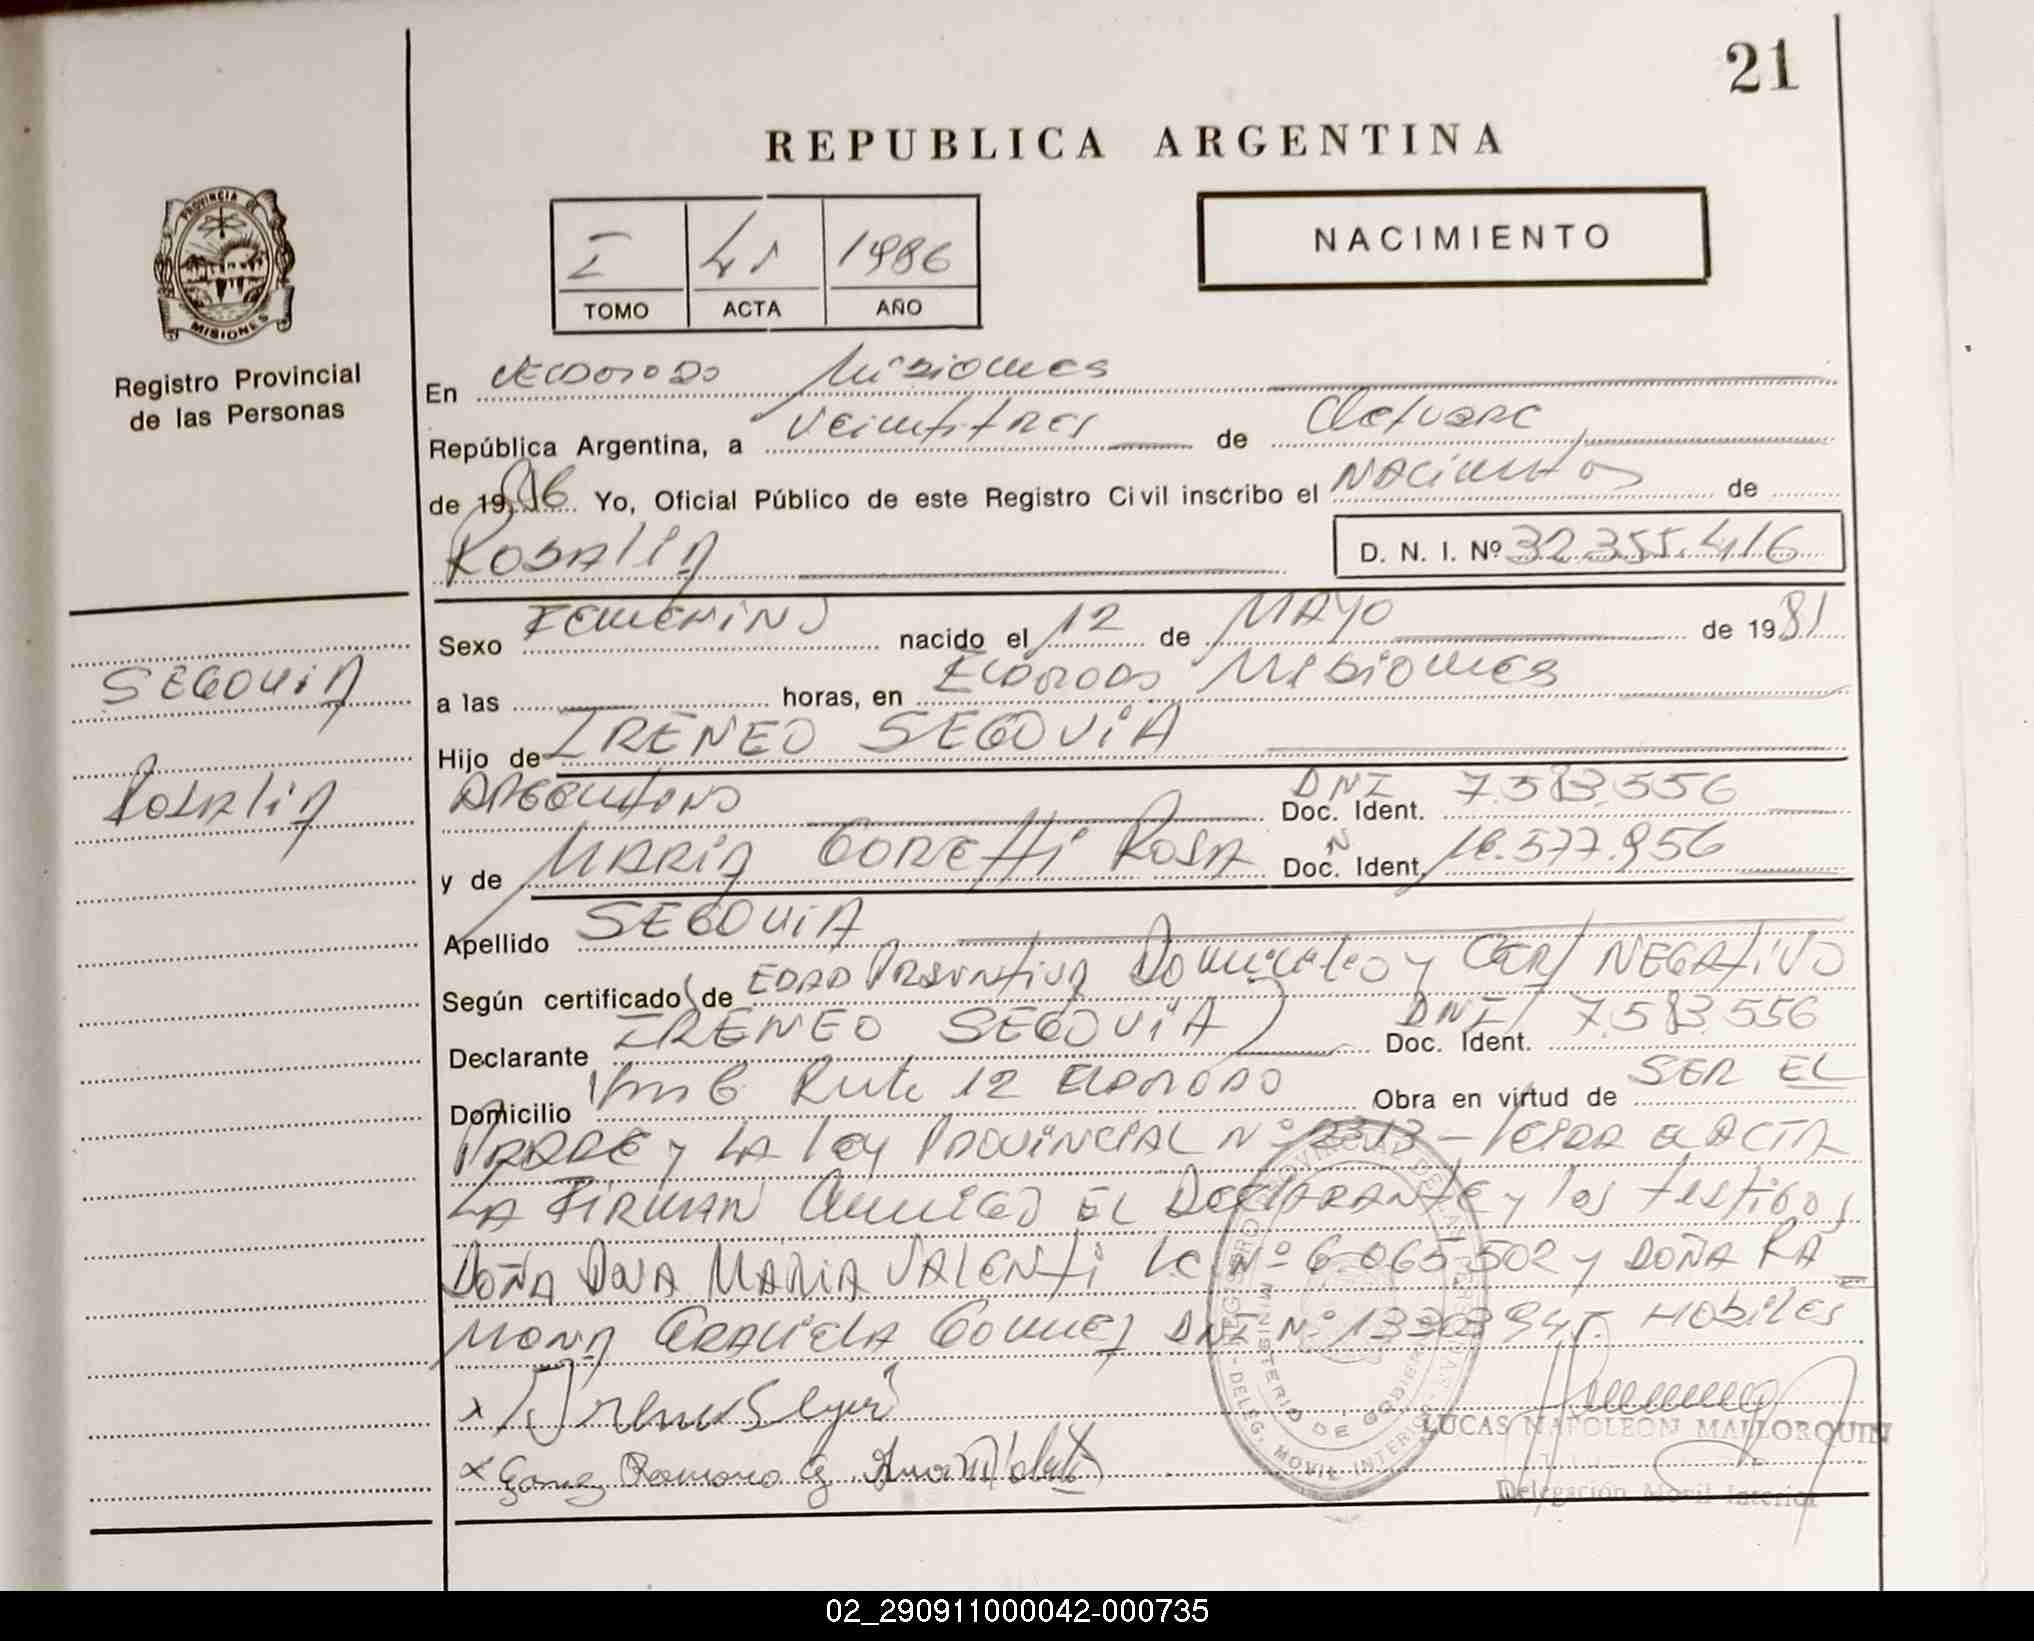 21
REPUBLICA ARGENTINA
PROVINCIA DE
MISIONES
Registro Provincial
de las Personas
I 41 1986
TOMO ACTA AÑO
NACIMIENTO
En ELDORADO Misiones
República Argentina, a veintitres de Octubre
de 1986 Yo, Oficial Público de este Registro Civil inscribo el NACimiento de
ROSALIA
D. N. I. Nº 32.355.416
Sexo FEMENINO nacido el 12 de MAYO de 1981
a las horas, en ELDORADO Misiones
SEGOVIA
Hijo de IRENEO SEGOVIA
ARGENTINO DNI Doc. Ident. 7.583.556
ROSALIA
y de MARIA GORETTi ROSA Doc. Ident. 577.956
Apellido SEGOVIA
Según certificado de EDAD PRESUNTIVA Domicilio y CERT NEGATIVO
Declarante IRENEO SEGOVIA DNI Doc. Ident. 7.583.556
Domicilio Km 6 Ruta 12 ELDORADO Obra en virtud de SER EL
PADRE y LA ley PROVINCIAL Nº 2313 - leida el ACTA
LA FIRMAN conmigo EL DECLARANTE y los testigos
DOÑA MARIA VALENTi LC Nº 6.065.502 y DOÑA RA_
MONA GRACIELA GOMEZ DNI Nº HABILES
x Ireneo Segovia
x Gomez Ramona G.
LUCAS NAPOLEON MALLORQUIN
Delegación Movil Interior
MINISTERIO DE GOBIERNO
DELEG. MOVIL INTERIOR
02_290911000042-000735